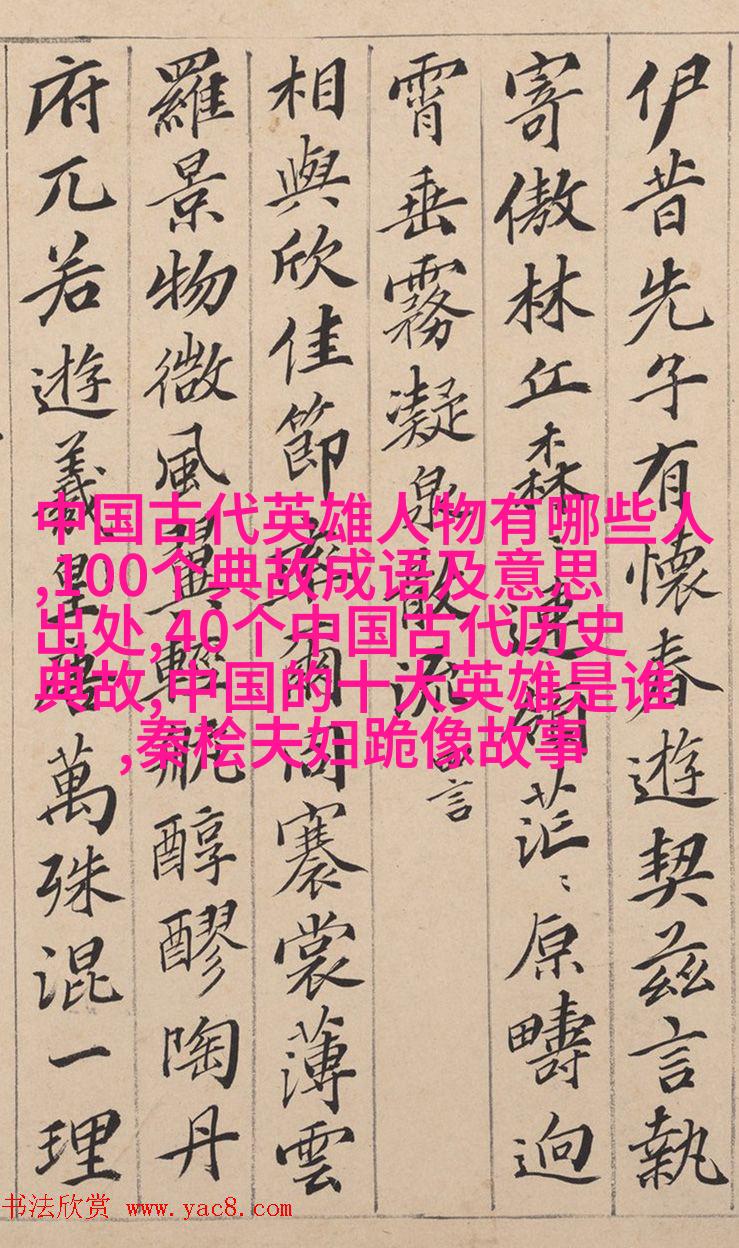 伊昔先子有懷春遊契茲言執
寄傲林丘森〻連嶺茫〻原疇逈
霄垂霧凝泉散流 言
相與欣佳節率爾同褰裳薄雲
羅景物微風翼輕航醇醪陶丹
府兀若遊羲 萬殊混一理
中国古代英雄人物有哪些人
,100个典故成语及意思
出处,40个中国古代历史
典故,中国的十大英雄是谁
,秦桧夫妇跪像故事
书法欣赏 www.yac8.com